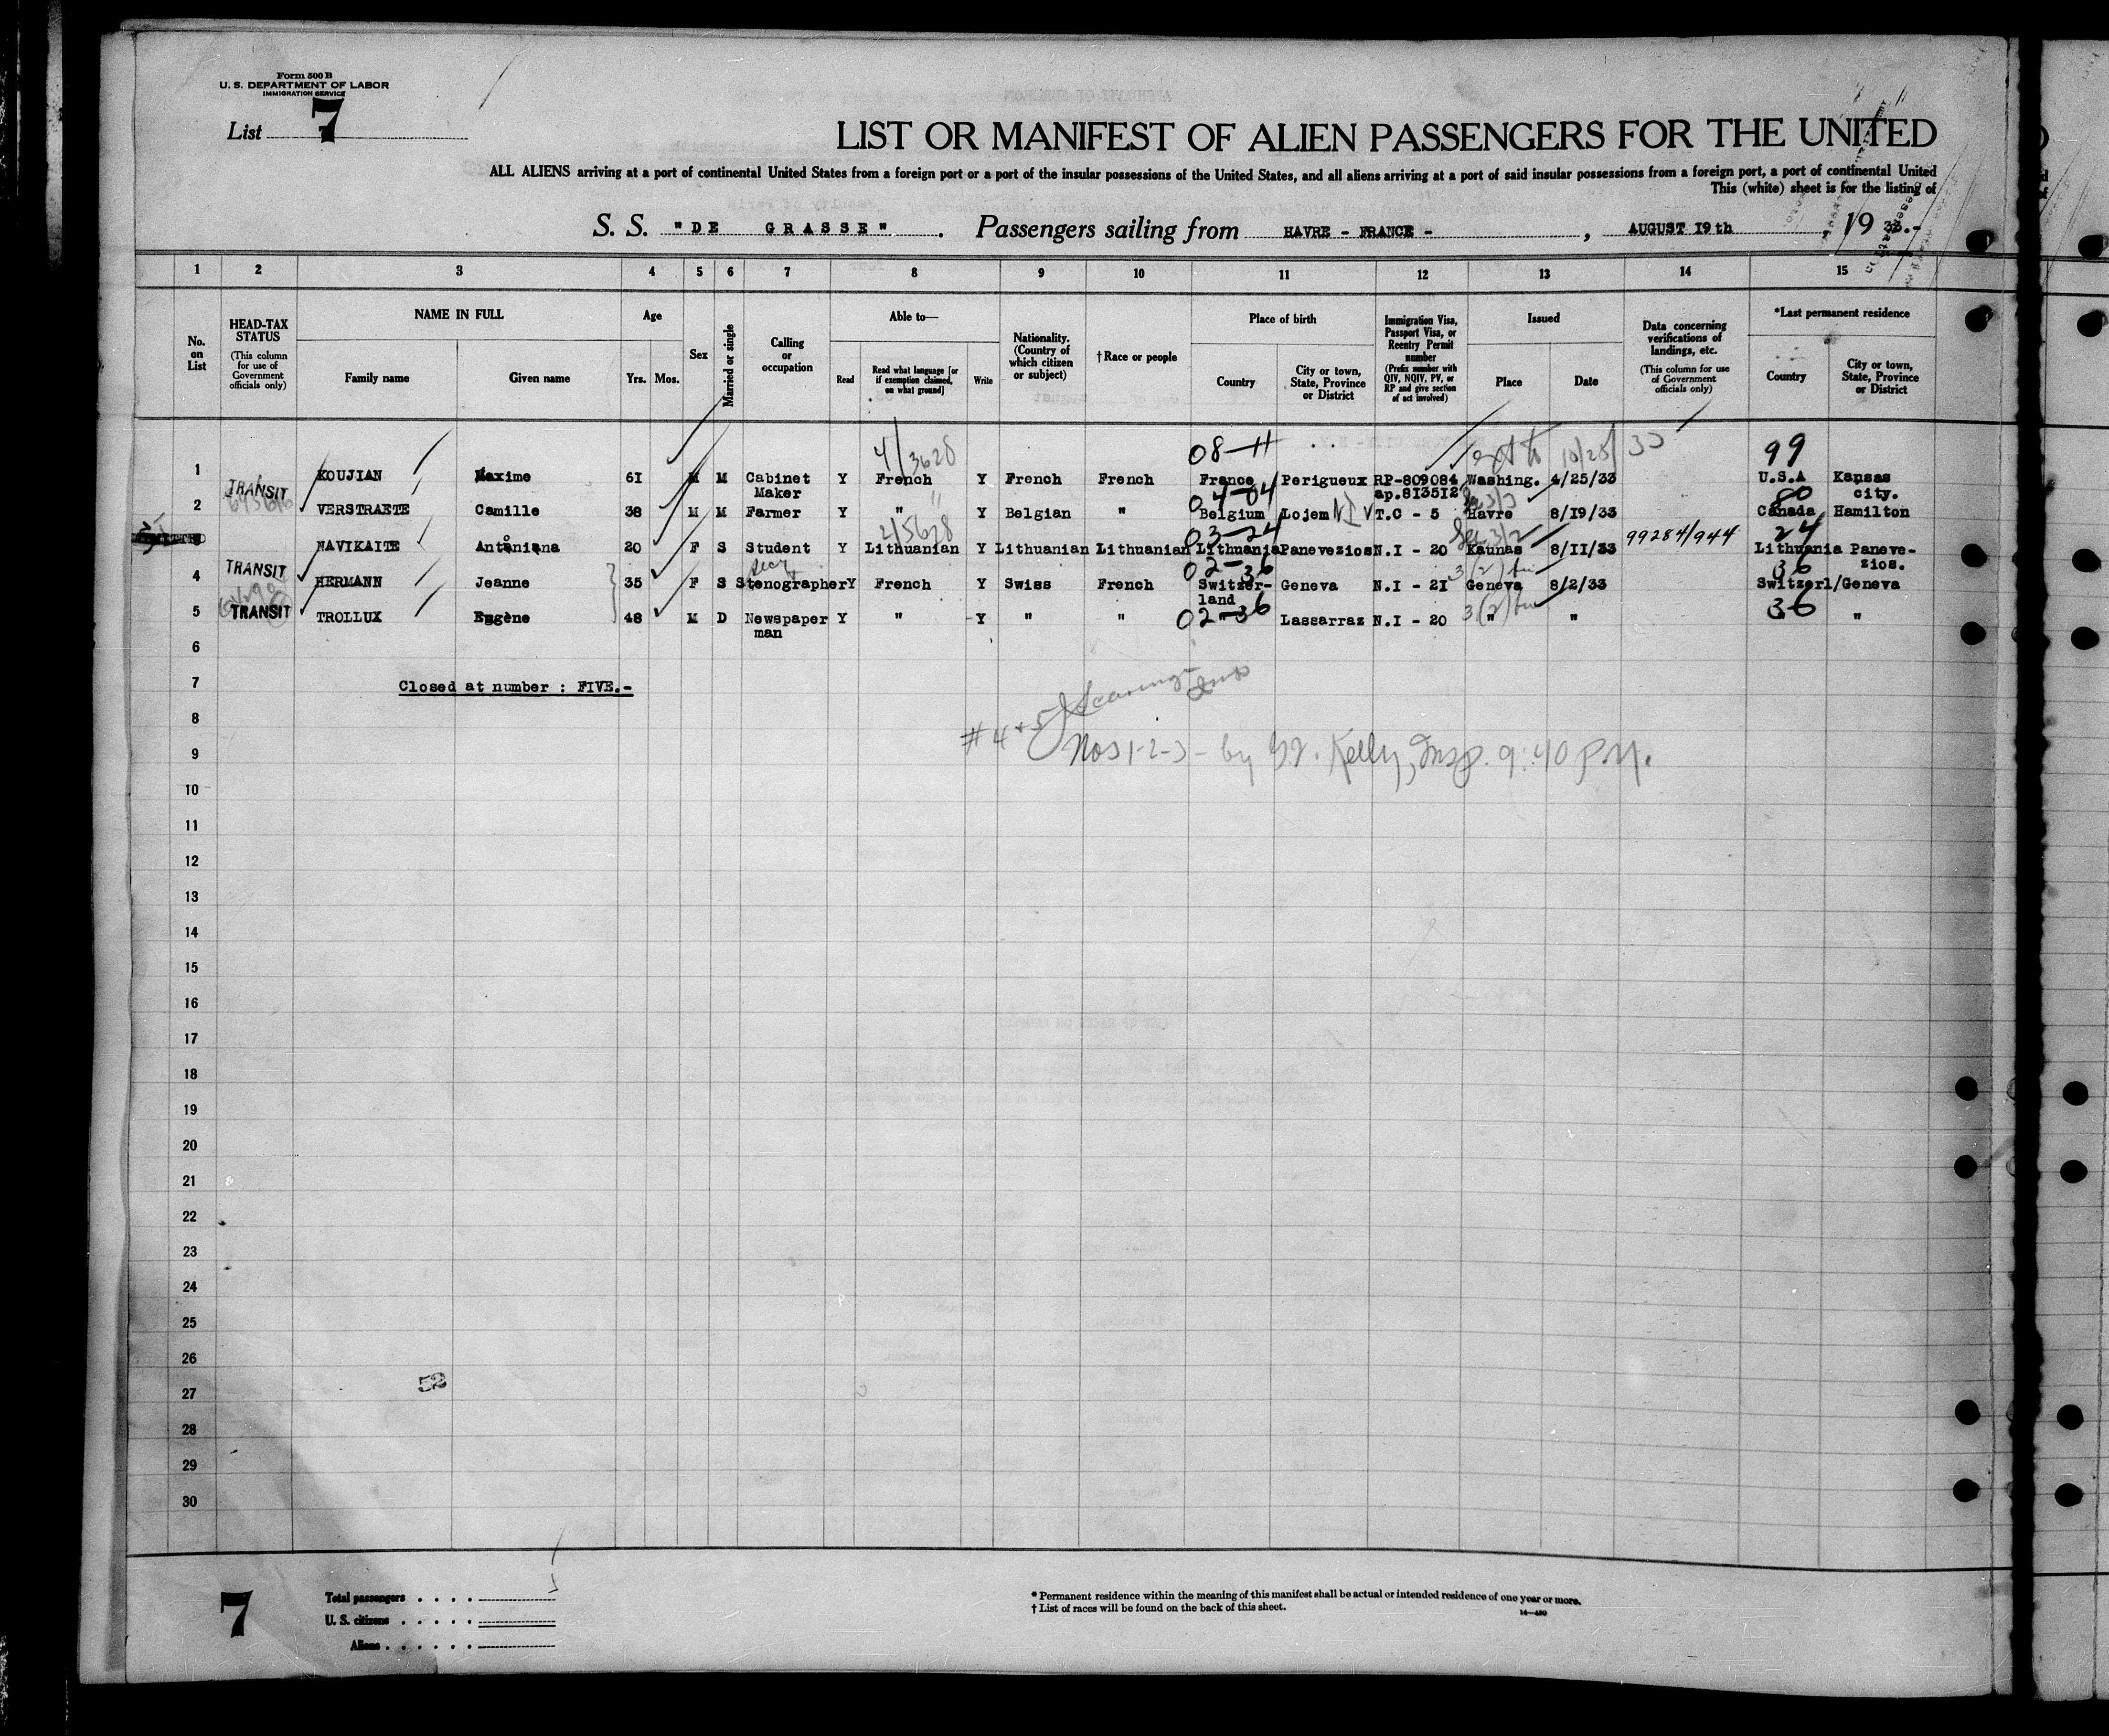 Form 500 B
U. S. DEPARTMENT OF LABOR
IMMIGRATION SERVICE
List 7
LIST OR MANIFEST OF ALIEN PASSENGERS FOR THE UNITED
ALL ALIENS arriving at a port of continental United States from a foreign port or a port of the insular possessions of the United States, and all aliens arriving at a port of said insular possessions from a foreign port, a port of continental United
This (white) sheet is for the listing of
S. S. "DE GRASSE". Passengers sailing from HAVRE - FRANCE - , AUGUST 19th , 19 33.-
1 2 3 4 5 6 7 8 9 10 11 12 13 14 15
No. on List
HEAD-TAX STATUS (This column for use of Government officials only)
NAME IN FULL
Family name
Given name
Age
Yrs. Mos.
Sex
Married or single
Calling or occupation
Able to—
Read
Read what language [or if exemption claimed, on what ground]
Write
Nationality. (Country of which citizen or subject)
†Race or people
Place of birth
Country
City or town, State, Province or District
Immigration Visa, Passport Visa, or Reentry Permit number (Prefix number with QIV, NQIV, PV, or RP and give section of act involved)
Issued
Place
Date
Data concerning verifications of landings, etc. (This column for use of Government officials only)
*Last permanent residence
Country
City or town, State, Province or District
4/3628 08-H 10/25/33 99
1 KOUJIAN Maxime 61 M M Cabinet Maker Y French Y French French France Perigueux RP-809084 ap.813512 Washing. 4/25/33 U.S.A Kansas city.
TRANSIT 04-04 80
2 VERSTRAETE Camille 38 M M Farmer Y " Y Belgian " Belgium Lojem T.C - 5 Havre 8/19/33 Canada Hamilton
2/5628 03-24 99284/944 24
NAVIKAITE Antonina 20 F S Student Y Lithuanian Y Lithuanian Lithuanian Lithuania Panevezios N.I - 20 Kaunas 8/11/33 Lithuania Paneve-zios.
TRANSIT 02-36 3(2) 36
4 HERMANN Jeanne 35 F S Stenographer Y French Y Swiss French Switzer-land Geneva N.I - 21 Geneva 8/2/33 Switzerl/Geneva
TRANSIT 02-36 3(2) 36
5 TROLLUX Eugène 48 M D Newspaper man Y " Y " " " Lassarraz N.I - 20 " " "
6
7 Closed at number : FIVE.-
8
#4+5
9 Nos 1-2-3- by Kelly, Insp. 9:40 P.M.
10
11
12
13
14
15
16
17
18
19
20
21
22
23
24
25
26
52
27
28
29
30
7
Total passengers
U. S. citizens
Aliens
* Permanent residence within the meaning of this manifest shall be actual or intended residence of one year or more.
† List of races will be found on the back of this sheet.
14—430